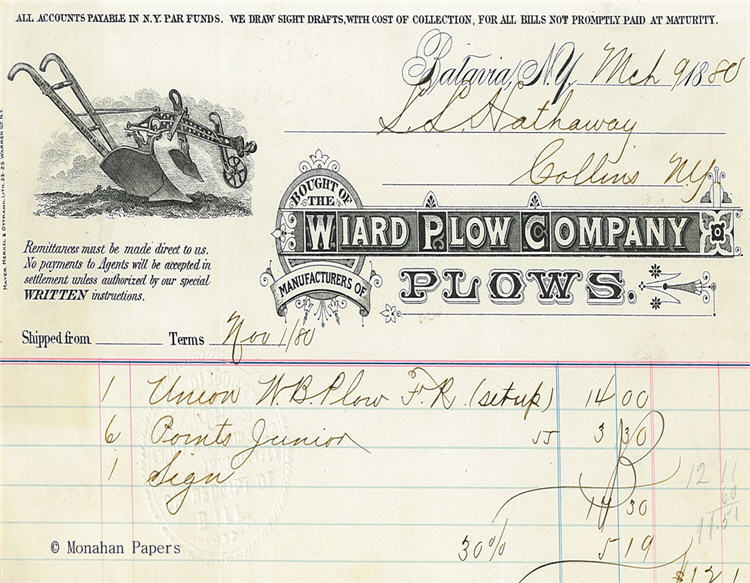 ALL ACCOUNTS PAYABLE IN N.Y. PAR FUNDS. WE DRAW SIGHT DRAFTS, WITH COST OF COLLECTION, FOR ALL BILLS NOT PROMPTLY PAID AT MATURITY.
Batavia, N.Y. Mch 9 1880
S L Hathaway
Collins N.Y.
BOUGHT OF
THE
WIARD PLOW COMPANY
MANUFACTURERS OF
PLOWS.
MAYER, MERKEL & OTTMANN, LITH. 23-25 WARREN ST. N.Y.
Remittances must be made direct to us.
No payments to Agents will be accepted in
settlement unless authorized by our special
WRITTEN instructions.
Shipped from Terms Nov 1/80
1 Union W.B. Plow F.R. (set up) 14 00
6 Points Junior 55 3 30
1 Sign
17 30
30% 5 19
12 11
60
11.51
RECEIPT OF
BILL.
© Monahan Papers